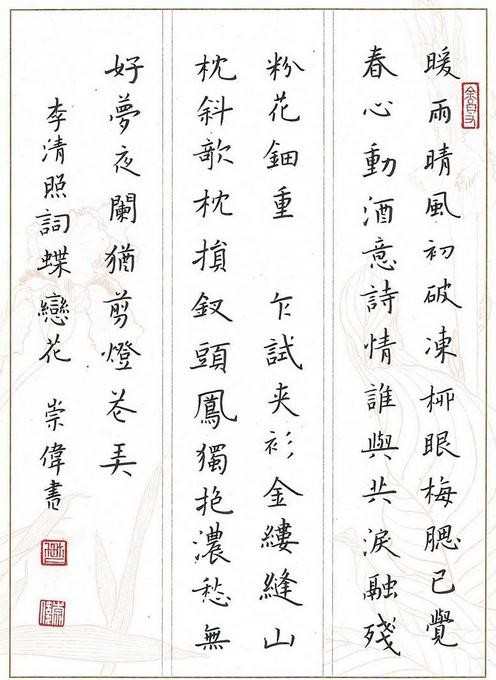 暖雨晴風初破凍柳眼梅腮已覺
春心動酒意詩情誰與共淚融殘
粉花鈿重　乍試夾衫金縷縫山
枕斜欹枕損釵頭鳳獨抱濃愁無
好夢夜闌猶剪燈花弄
李清照詞蝶戀花　崇偉書